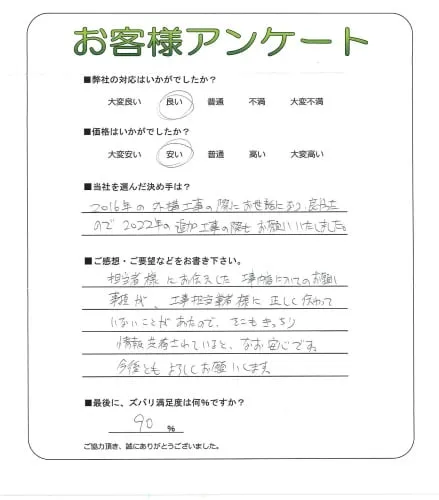 お客様アンケート
■弊社の対応はいかがでしたか？
大変良い 良い 普通 不満 大変不満
■価格はいかがでしたか？
大変安い 安い 普通 高い 大変高い
■当社を選んだ決め手は？
2016年の外構工事の際にお世話になり、良かった
ので2022年の追加工事の際もお願いいたしました。
■ご感想・ご要望などをお書き下さい。
担当者様にお伝えした工事内容についてのお願い
事項が、工事担当業者様に正しく伝わって
いないことがあったので、そこもきっちり
情報共有されていると、なお安心です。
今後ともよろしくお願いします。
■最後に、ズバリ満足度は何%ですか？
90 %
ご協力頂き、誠にありがとうございました。